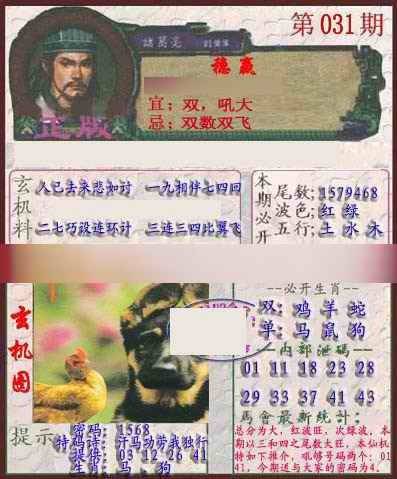 第031期
諸葛亮
穩贏
宜；双，吼大
忌；双数双飞
正版
玄机料
久已去来悲如讨 一九相伴七四回
二七巧设连环计 三连三四比翼飞
本期必开
尾数;1579468
波色;红 绿
五行;土 水 木
玄机图
--必开生肖--
双: 鸡 羊 蛇
单: 马 鼠 狗
内部泄码
01 11 18 23 28
29 33 37 41 43
馬會最新統计:
总分为大，红波旺，次绿波，本
期以三和四之尾数大旺，本仙机
特如下推介，吼够号码两个：01
41，今期送与大家的密码为4.
提示
密码: 1568
特码诗: 汗马功劳我独行
提供: 03 12 26 41
生肖: 马 狗